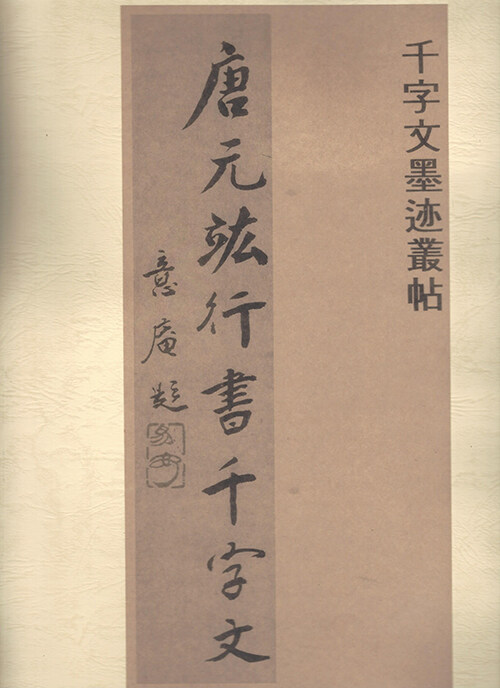 千字文墨迹叢帖
唐元竑行書千字文
意庵題